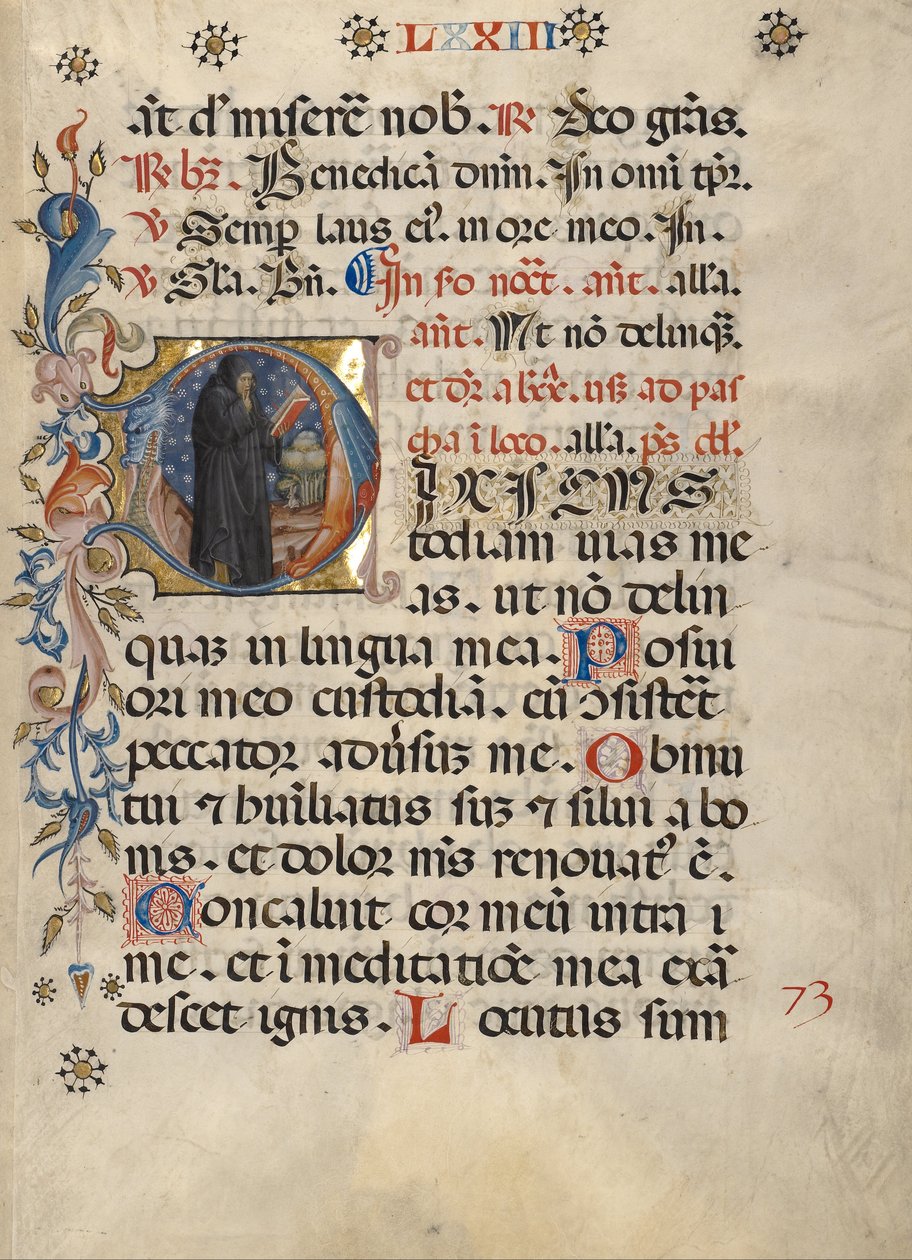 LXXIII
aut̃ d̃ miserẽ nob̃. R Deo grãs.
R bꝫ. Benedicã dñm. In omi tp̃r.
V Semp laus eiꝰ. in ore meo. In.
V Gl̃a. Bñ. In s̃o noc̃t. añt. all'a.
añt. Ut nõ delinq̃.
et dr̃ a lxx.ª usꝫ ad pas
cha ĩ loco. all'a. p̃s dd̃.
DIXI CUS
todiam uias me
as. ut nõ delin
quaꝫ in lingua mea. Posui
ori meo custodiã. cũ ꝯsistẽt
peccator aduersuꝫ me. Obmu
tui ⁊ humiliatus suꝫ ⁊ silui a bo
nis. et dolor m̃s renouatꝰ ẽ.
Concaluit cor meũ intra i
me. et ĩ meditatiõe mea exã
descet ignis. Locutus sum
73